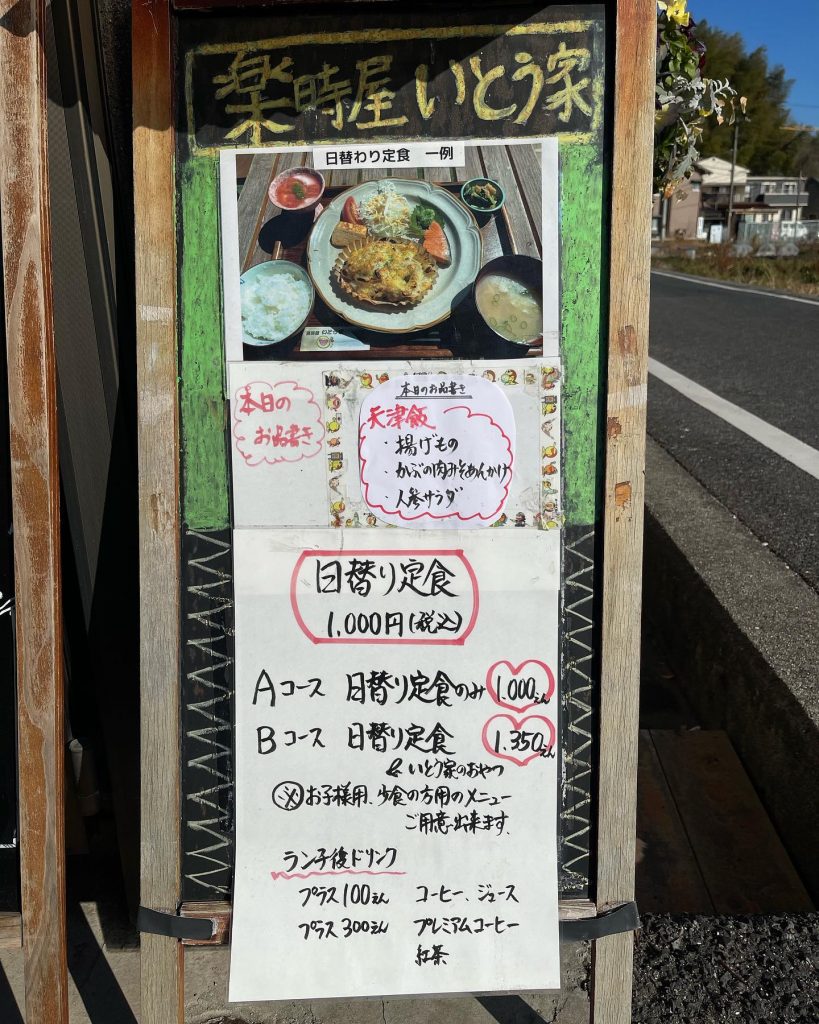 楽時屋いとう家
日替わり定食　一例
本日の
お品書き
本日のお品書き
天津飯
・揚げもの
・かぶの肉みそあんかけ
・人参サラダ
日替り定食
1,000円(税込)
Aコース 日替り定食のみ 1.000えん
Bコース 日替り定食 1.350えん
& いとう家のおやつ
※お子様用、少食の方用のメニュー
ご用意出来ます、
ランチ後ドリンク
プラス100えん コーヒー、ジュース
プラス300えん プレミアムコーヒー
紅茶